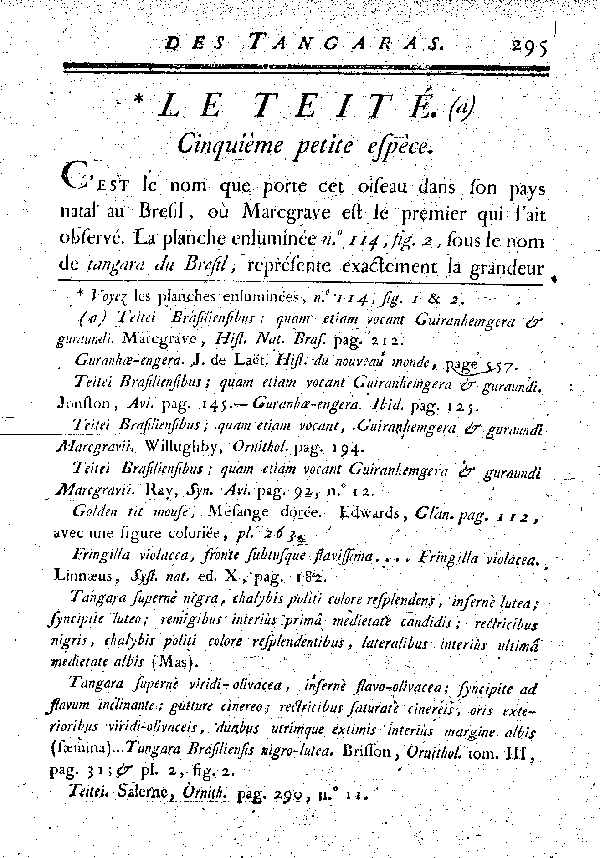 DES TANGARAS. 295
* LE TEITÉ. (a)
Cinquième petite espèce.
C'EST le nom que porte cet oiseau dans son pays
natal au Bresil, où Marcgrave est le premier qui l'ait
observé. La planche enluminée n.° 114, fig. 2, sous le nom
de tangara du Bresil, représente exactement la grandeur
* Voyez les planches enluminées, n.° 114, fig. 1 & 2.
(a) Teitei Brasiliensibus; quam etiam vocant Guiranhemgera &
guraundi. Marcgrave, Hist. Nat. Bras. pag. 212.
Guranhæ-engera. J. de Laët. Hist. du nouveau monde, page 557.
Teitei Brasiliensibus; quam etiam vocant Guiranhemgera & guraundi.
Jonston, Avi. pag. 145.— Guranhæ-engera. Ibid. pag. 125.
Teitei Brasiliensibus; quam etiam vocant, Guiranhemgera & guraundi
Marcgravii. Willughby, Ornithol. pag. 194.
Teitei Brasiliensibus; quam etiam vocant Guiranhemgera & guraundi
Marcgravii. Ray, Syn. Avi. pag. 92, n.° 12.
Golden tit mouse, Mésange dorée. Edwards, Glan. pag. 112,
avec une figure coloriée, pl. 263.
Fringilla violacea, fronte subtusque flavissima.... Fringilla violacea.
Linnæus, Syst. nat. ed. X, pag. 182.
Tangara supernè nigra, chalybis politi colore resplendens, infernè lutea;
syncipite luteo; remigibus interiùs primâ medietate candidis; rectricibus
nigris, chalybis politi colore resplendentibus, lateralibus interiùs ultimâ
medietate albis (Mas).
Tangara supernè viridi-olivacea, infernè flavo-olivacea; syncipite ad
flavum inclinante; gutture cinereo; rectricibus saturatè cinereis, oris exte-
rioribus viridi-olivaceis, duabus utrimque extimis interiùs margine albis
(fœmina)...Tangara Brasiliensis nigro-lutea. Brisson, Ornithol. tom. III,
pag. 31; & pl. 2, fig. 2.
Teitei. Salerne, Ornith. pag. 290, n.° 11.